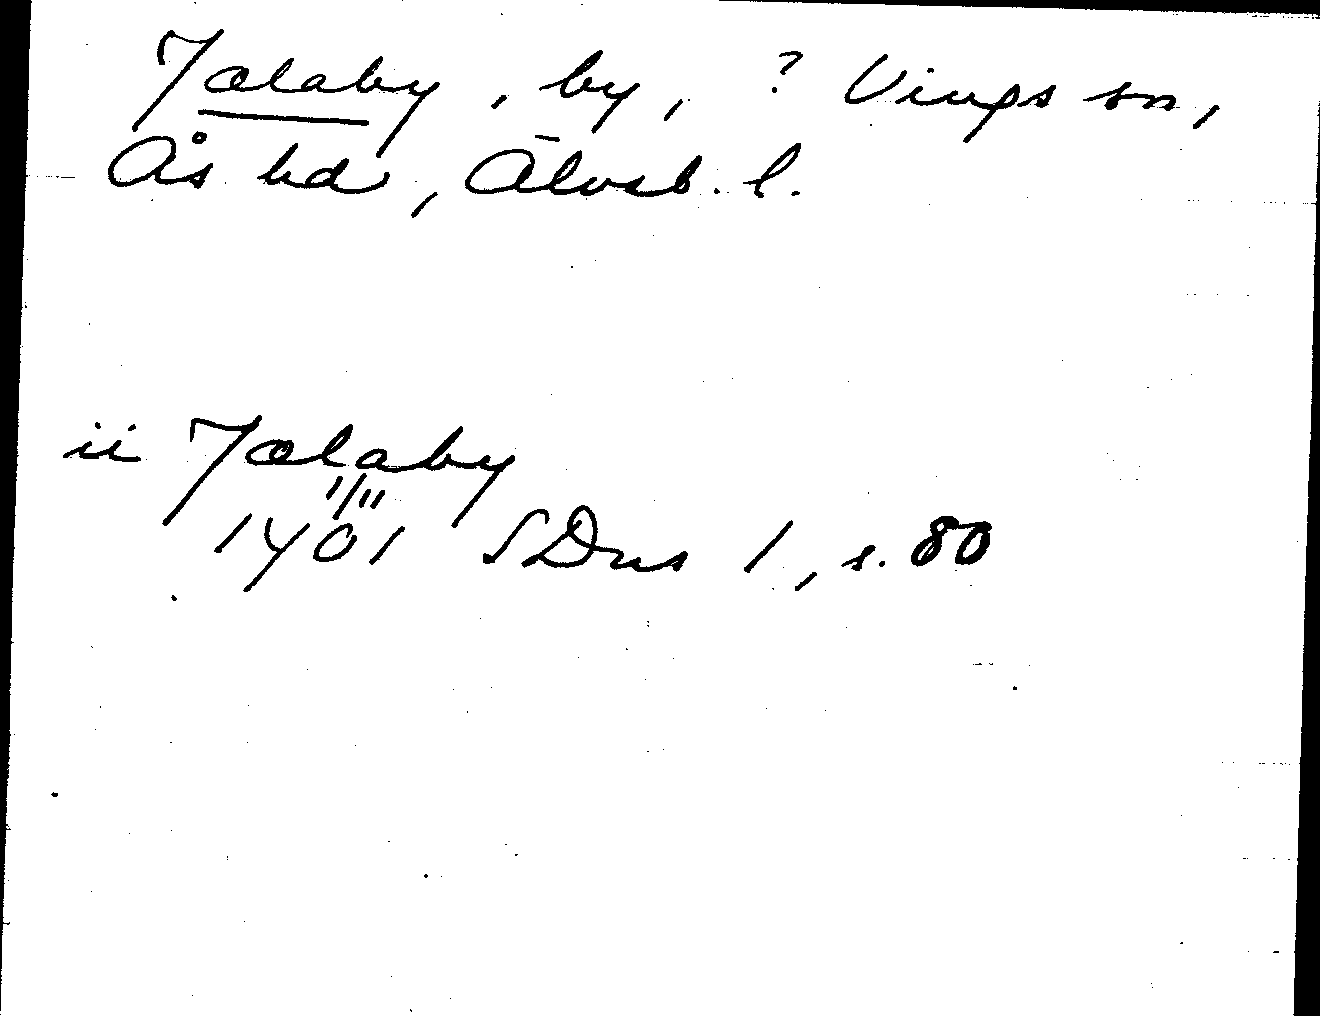 Jælaby, by, ? Vings sn,
Ås hd, Älvsb. l.
ii Jælaby
1/11
1401 SDns 1, s. 80